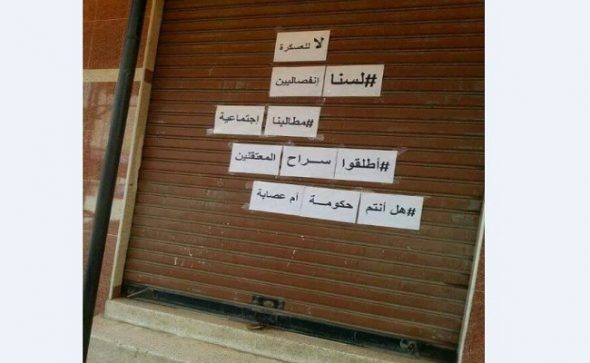 لا للعسكرة
#لسنا إنفصاليين
#مطالبنا إجتماعية
#أطلقوا سراح المعتقلين
#هل أنتم حكومة أم عصابة